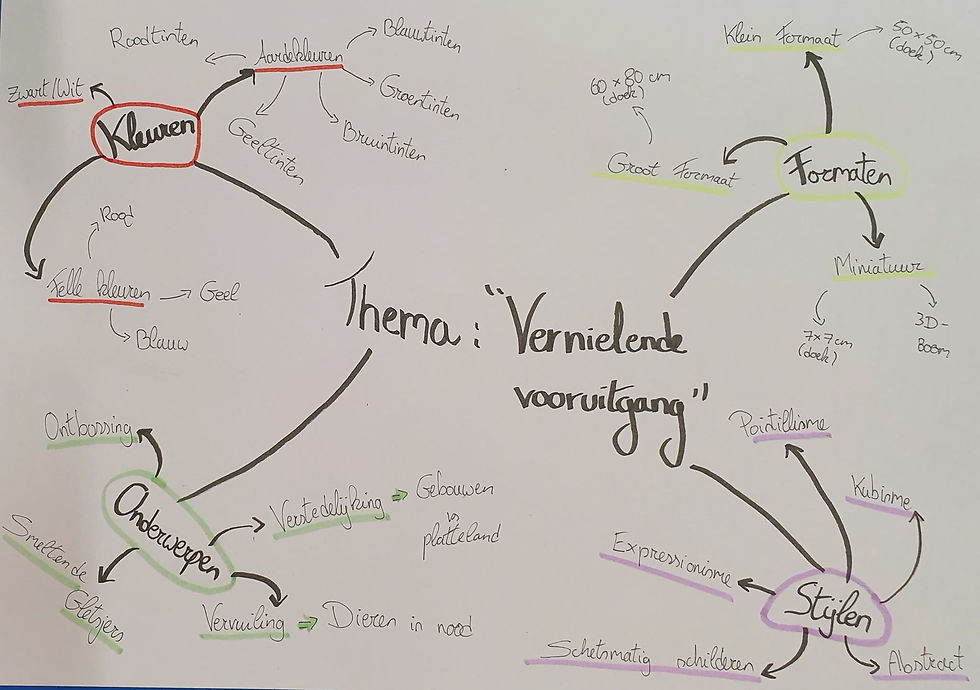 Thema: "Vernielende
vooruitgang"
Kleuren
Zwart/Wit
Aardekleuren
Roodtinten
Blauwtinten
Groentinten
Bruintinten
Geeltinten
Felle kleuren
Rood
Geel
Blauw
Formaten
Klein Formaat
50 x 50 cm
(doek)
Groot Formaat
60 x 80 cm
(doek)
Miniatuur
7x7cm
(doek)
3D-
Boom
Onderwerpen
Ontbossing
Verstedelijking ⇒ Gebouwen
vs
platteland
Vervuiling ⇒ Dieren in nood
Smeltende
Gletsjers
Stijlen
Pointillisme
Kubisme
Expressionisme
Schetsmatig schilderen
Abstract